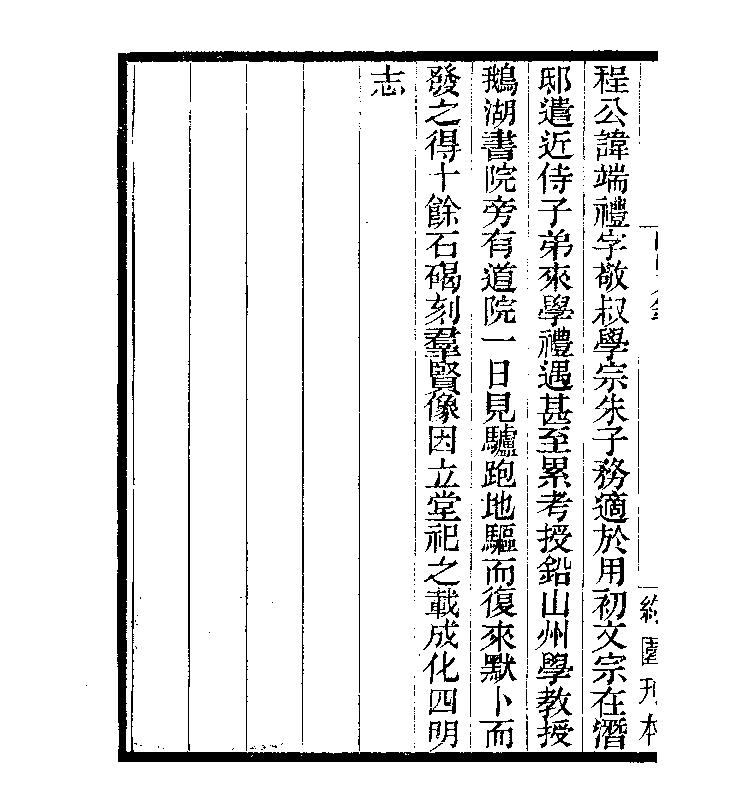 程公諱端禮字敬叔學宗朱子務適於用初文宗在潛
邸遣近侍子弟來學禮遇甚至累考授鉛山州學教授
鵝湖書院旁有道院一日見驢跑地驅而復來默卜而
發之得十餘石碣刻羣賢像因立堂祀之載成化四明
志
園刊本